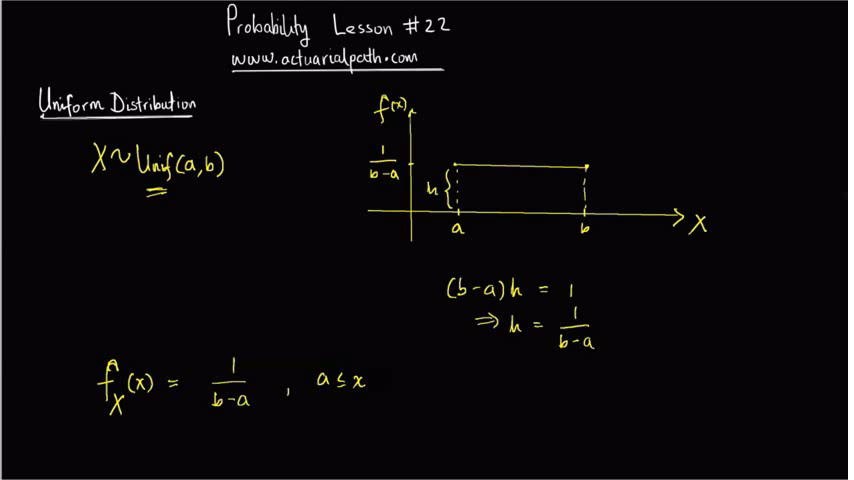 Probability Lesson #22
www.actuarialpath.com
Uniform Distribution
X ~ Unif(a,b)
f(x)
1
b-a
h
a
b
X
(b-a)h = 1
⇒ h = 1/(b-a)
f_X(x) = 1/(b-a) , a ≤ x